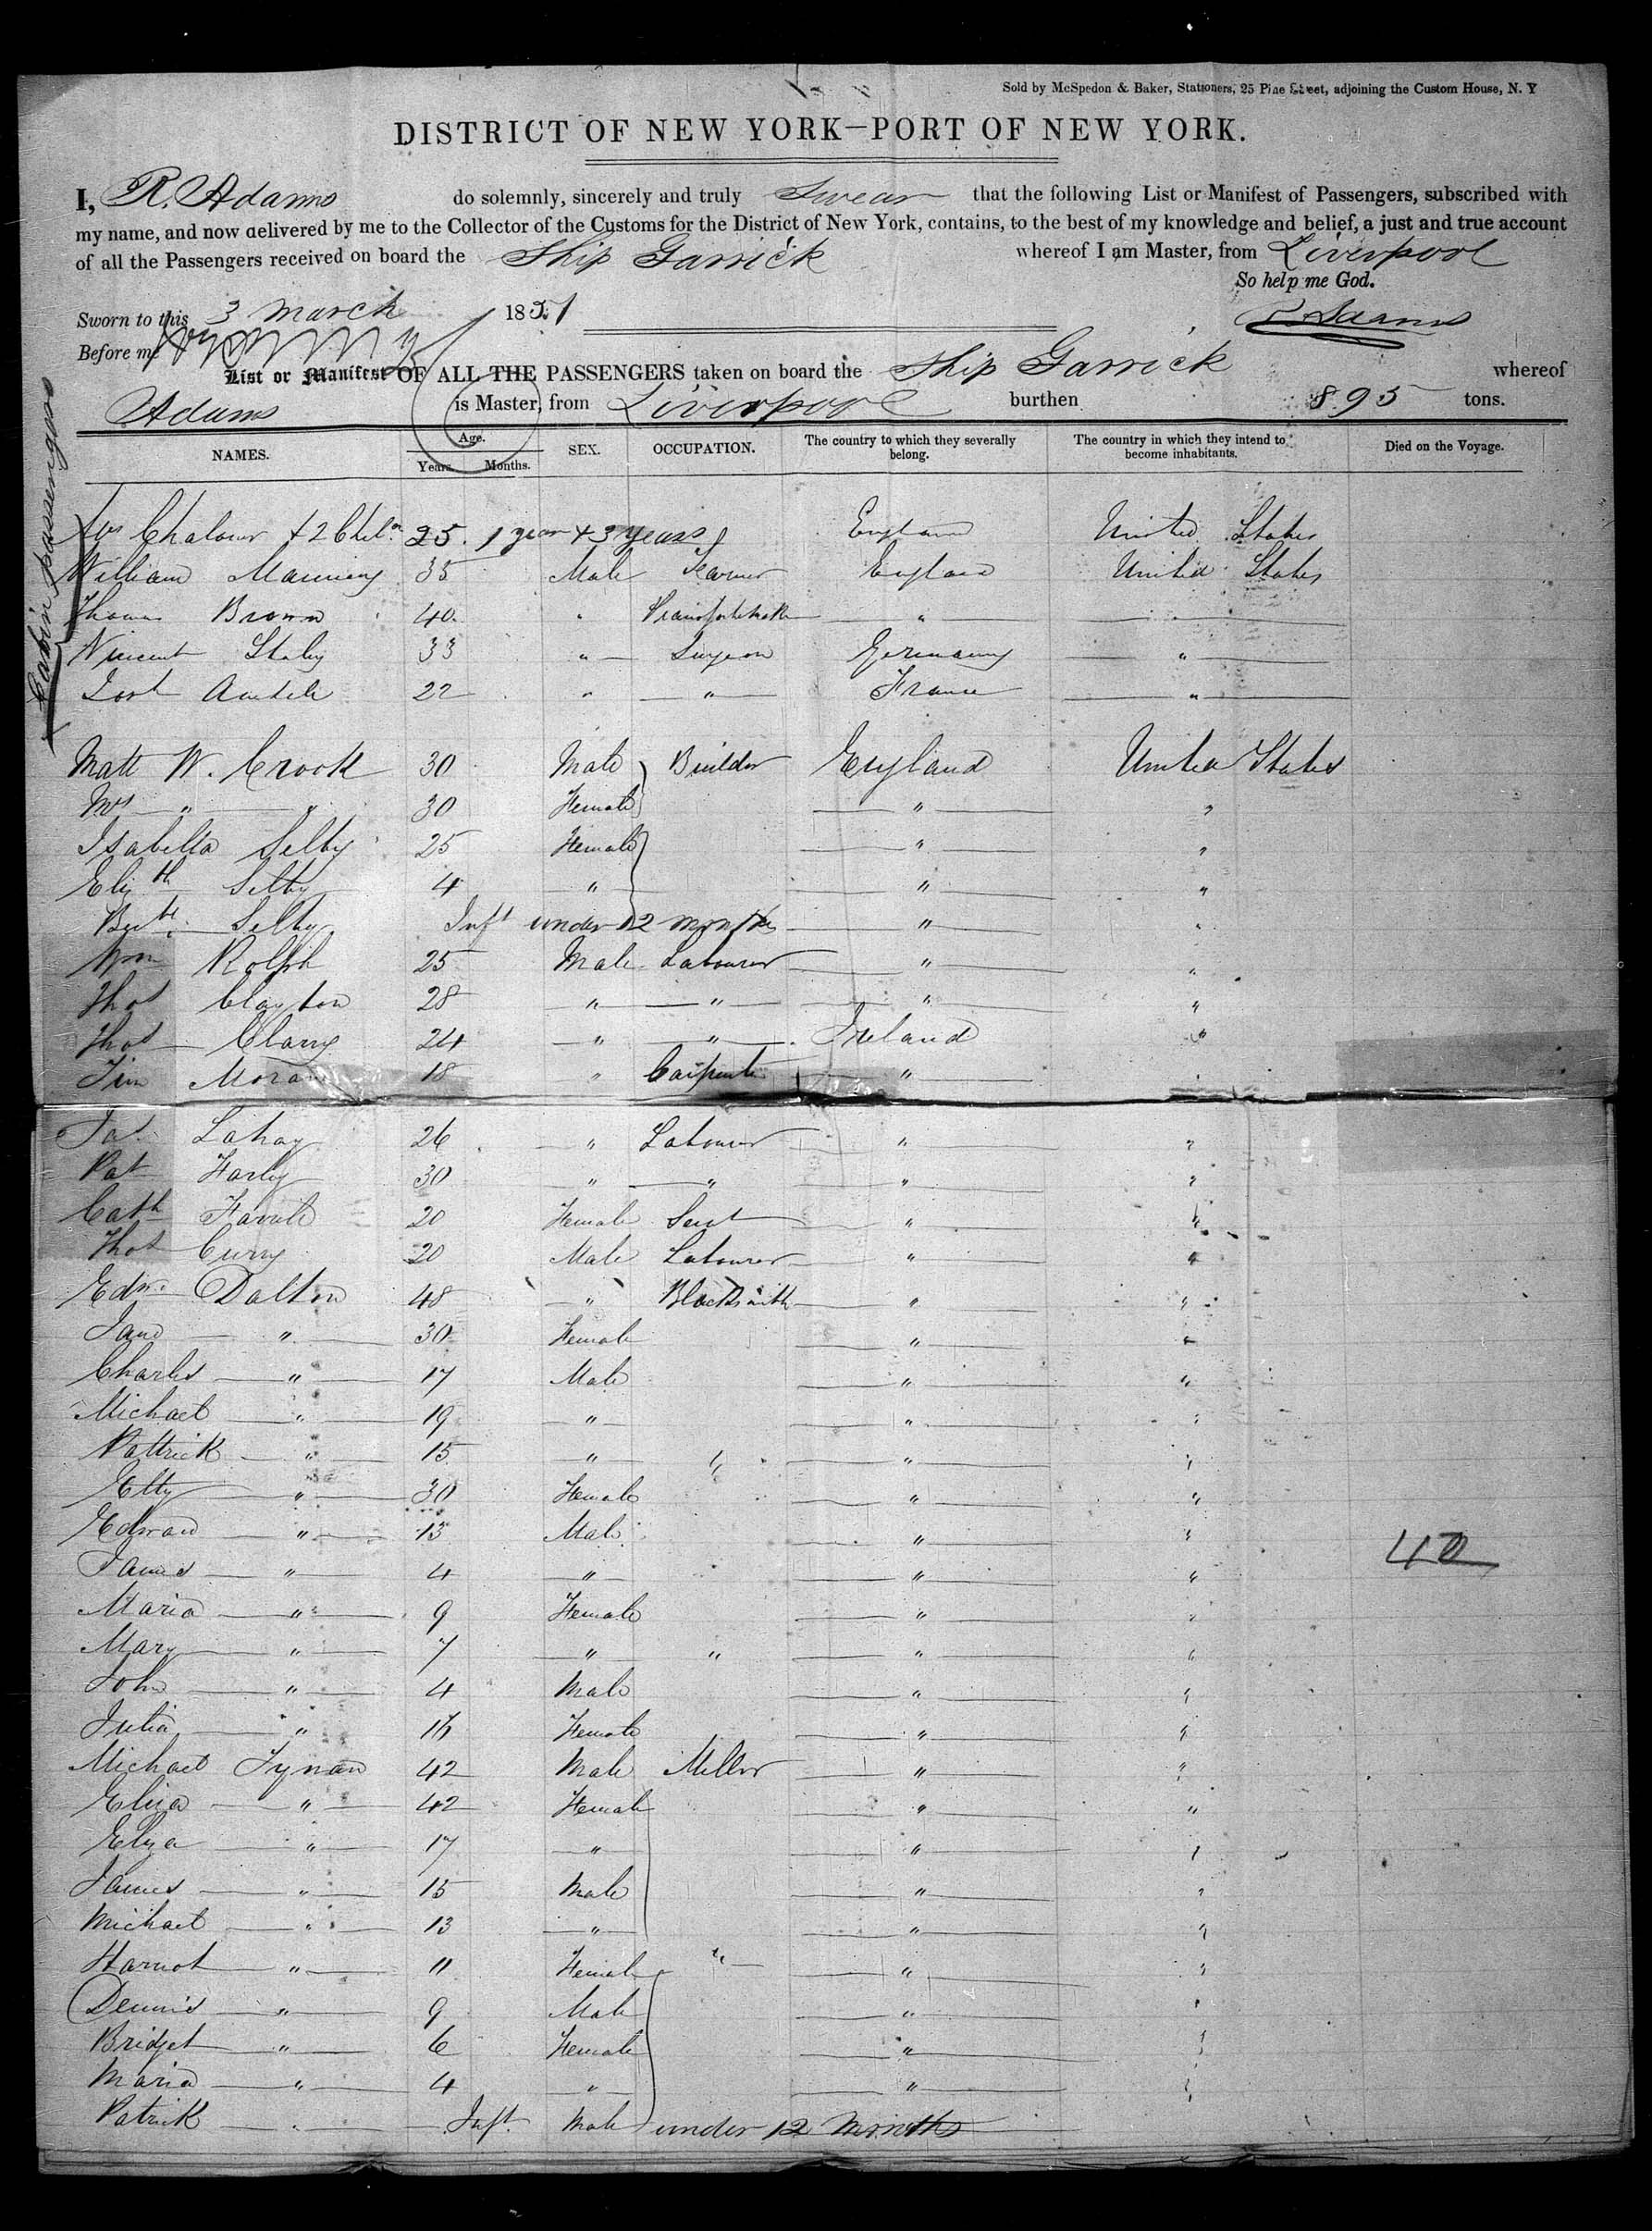 Sold by McSpedon & Baker, Stationers, 25 Pine Street, adjoining the Custom House, N. Y
DISTRICT OF NEW YORK—PORT OF NEW YORK.
I, R. Adams do solemnly, sincerely and truly Swear that the following List or Manifest of Passengers, subscribed with
my name, and now delivered by me to the Collector of the Customs for the District of New York, contains, to the best of my knowledge and belief, a just and true account
of all the Passengers received on board the Ship Garrick whereof I am Master, from Liverpool
So help me God.
Sworn to this 3 March 1851
R Adams
Before me
List or Manifest OF ALL THE PASSENGERS taken on board the Ship Garrick whereof
Adams is Master, from Liverpool burthen 895 tons.
NAMES. Age. Years. Months. SEX. OCCUPATION. The country to which they severally belong. The country in which they intend to become inhabitants. Died on the Voyage.
Cabin passengers
Mrs Chaloner + 2 Chil 25. 1 year + 3 years England United States
William Manning 35 Male Farmer England United States
Thomas Brown 40 " " "
Vincent 33 " Surgeon Germany "
22 " " France "
Matt W. Crook 30 Male Builder England United States
Mrs " " 30 Female " "
Isabella Selby 25 Female " "
Eliz th Selby 4 " " "
Selby Inft under 12 months " "
Wm Rolph 25 Male Labourer " "
Thos Clayton 28 " " " "
Thos Clarry 24 " " Ireland "
Jim Moran 18 " Carpenter " "
Lahay 26 " Labourer " "
Pat Farley 30 " " " "
Cath 20 Female Servt " "
Thos Curry 20 Male Labourer " "
Edw. Dalton 48 " Blacksmith " "
Jane " 30 Female " "
Charles " 17 Male " "
Michael " 19 " " "
Pattrick " 15 " " " "
Etty " 30 Female " "
Edward " 13 Male " "
40
James " 4 " " "
Maria " 9 Female " "
Mary " 7 " " " "
John " 4 Male " "
Julia " 16 Female " "
Michael Tynan 42 Male Miller " "
Eliza " 42 Female " "
Eliza " 17 " " "
James " 15 Male " "
Michael " 13 " " "
Harriot " 11 Female " " "
Dennis " 9 Male " "
Bridget " 6 Female " "
Maria " 4 " " "
Patrick " Inft. Male under 12 months